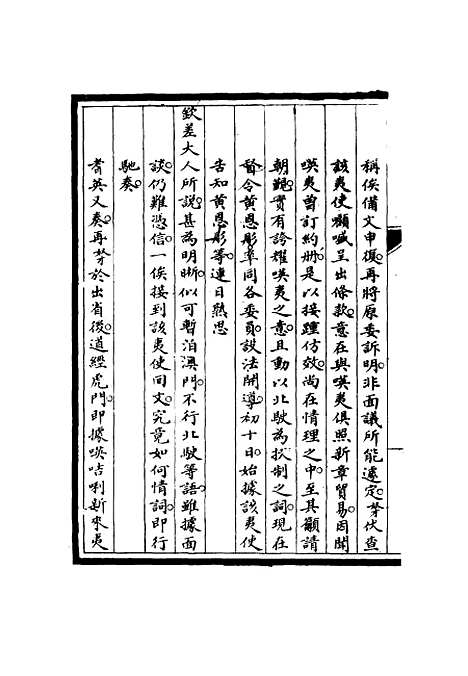 稱俟備文申復。再將原委訴明。非面議所能遽定。等伏查
該夷使顧喊呈出條款。意在與嘆夷俱照新章貿易。因聞
嘆夷曾訂約册。是以接踵仿效。尚在情理之中。至其籲請
朝覲。實有誇耀嘆夷之意。且動以北駛為挾制之詞。現在
督令黃恩彤率同各委員。設法開導。初十日。始據該夷使
告知黃恩彤等。連日熟思
欽差大人所說。甚為明晰。似可暫泊澳門。不行北駛等語。雖據面
談。仍難憑信。一俟接到該夷使回文。究竟如何情詞。即行
馳奏。
耆英又奏。再等於出省後。道經虎門。即據嘆咭唎新來夷